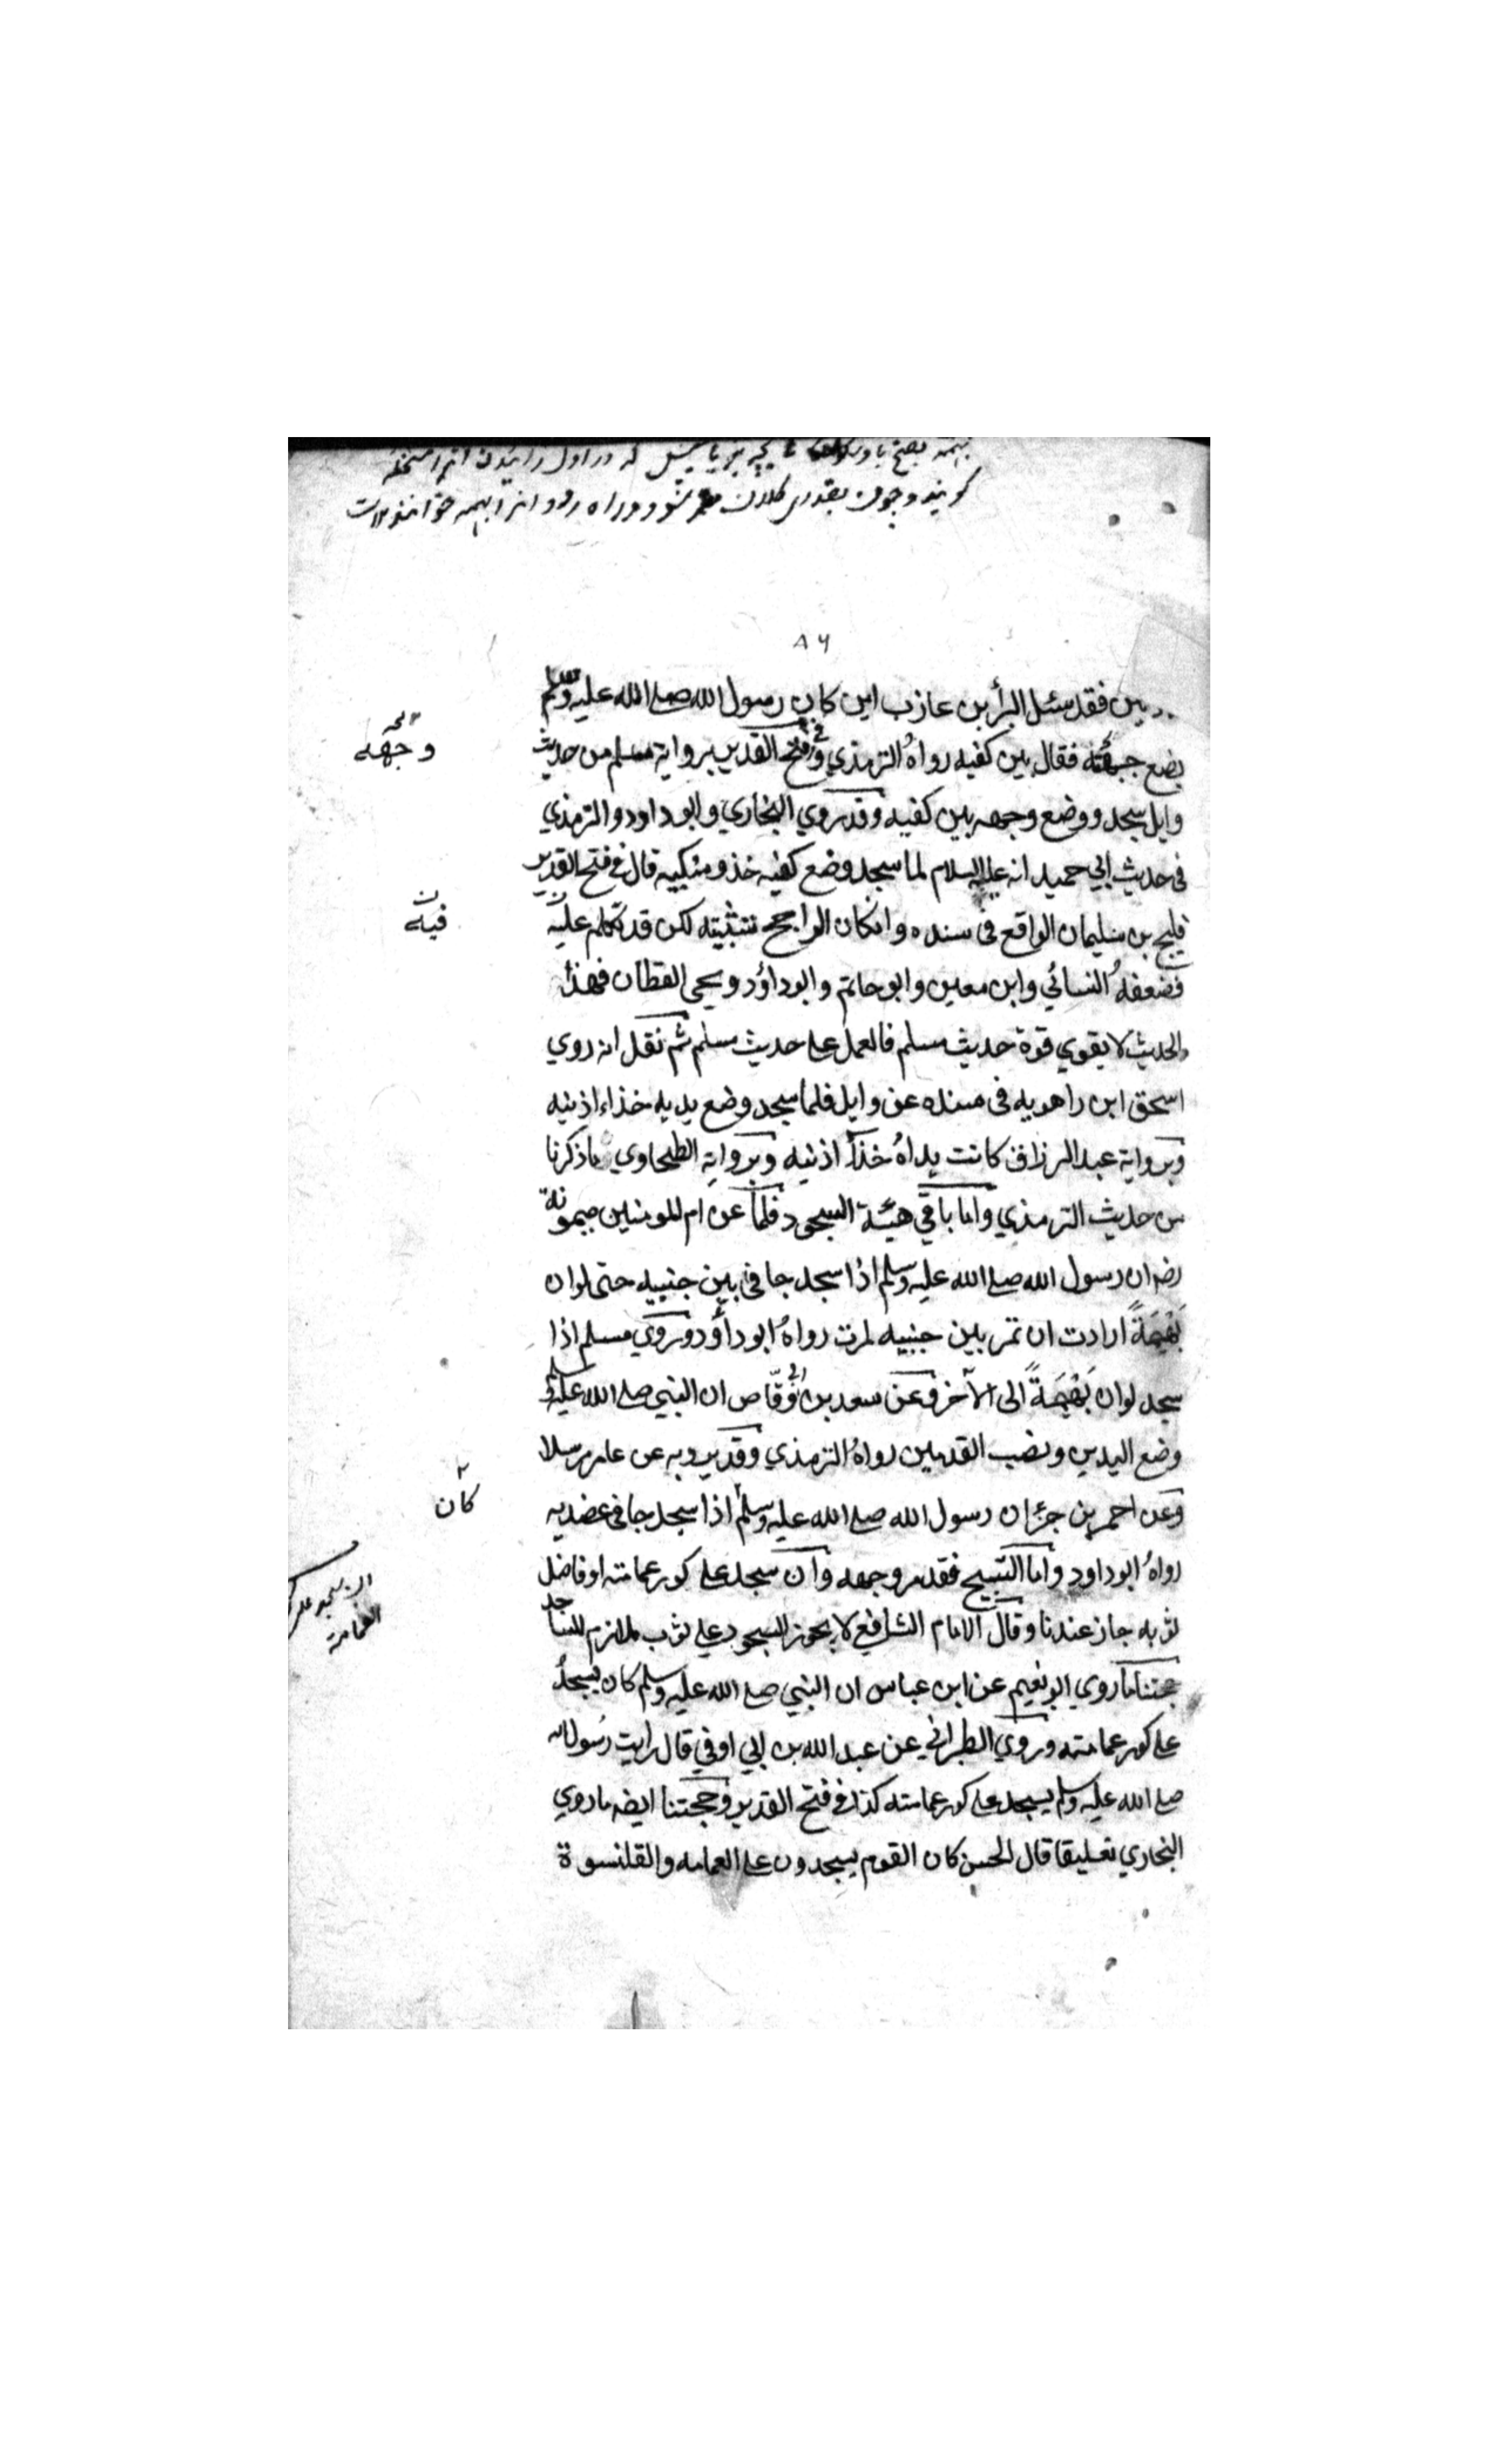 گویند و چون بقدری کلان شود و براه رود انرا بهمه خوانند
٨٦
فقد سئل البرأ بن عازب اين كان رسول الله صلى الله عليه وسلم
يضع جبهته فقال بين كفيه رواه الترمذي وفي فتح القدير برواية مسلم من حديث
وجهه
وايل سجد ووضع وجهه بين كفيه وقد روي البخاري وابو داود والترمذي
فى حديث ابي حميد انه عليه السلام لما سجد وضع كفيه خذو منكبيه قال في فتح القدير
فليح بن سليمان الواقع فى سنده وانكان الراجح تثبيته لكن قد تكلم عليه
فيه
فضعفه النسائي وابن معين وابو حاتم وابوداؤد ويحى القطان فهذا
الحديث لا يقوي قوة حديث مسلم فالعمل على حديث مسلم ثم نقل انه روي
اسحق ابن راهويه فى مسنده عن وايل فلما سجد وضع يديه خذاء اذنيه
وبرواية عبد الرزاق كانت يداه خذأ اذنيه وبرواية الطحاوي ماذكرنا
من حديث الترمذي واما باقي هيئة السجود فلما عن ام المومنين ميمونة
رضـ ان رسول الله صلى الله عليه وسلم اذا سجد جافى بين جنبيه حتى لوان
بَهْيمَةً ارادت ان تمر بين جنبيه لمرت رواه ابو داؤد وروي مسلم اذا
سجد لوان بَهْيمَةً الى الآخر وعن سعد بن ابي وقّاص ان النبي صلى الله عليه وسلم
وضع اليدين ونصب القدمين رواه الترمذي وقد يروبه عن عامر مرسلا
كان
وعن احمر بن جزء ان رسول الله صلى الله عليه وسلم اذا سجد جافى عضديه
رواه ابو داود واما التسبيح فقد مر وجهه وان سجد على كور عمامته او فاضل
العمامة
ثوبه جاز عندنا وقال الامام الشافعي لا يجوز السجود على ثوب ملازم للساجد
حجتنا ما روي ابو نعيم عن ابن عباس ان النبي صلى الله عليه وسلم كان يسجد
على كور عمامته وروي الطبراني عن عبد الله بن ابي اوفي قال رايت رسول الله
صلى الله عليه وسلم يسجد على كور عمامته كذا في فتح القدير وحجتنا ايضـ ما روي
البخاري تعليقا قال الحسن كان القوم يسجدون على العمامه والقلنسوة